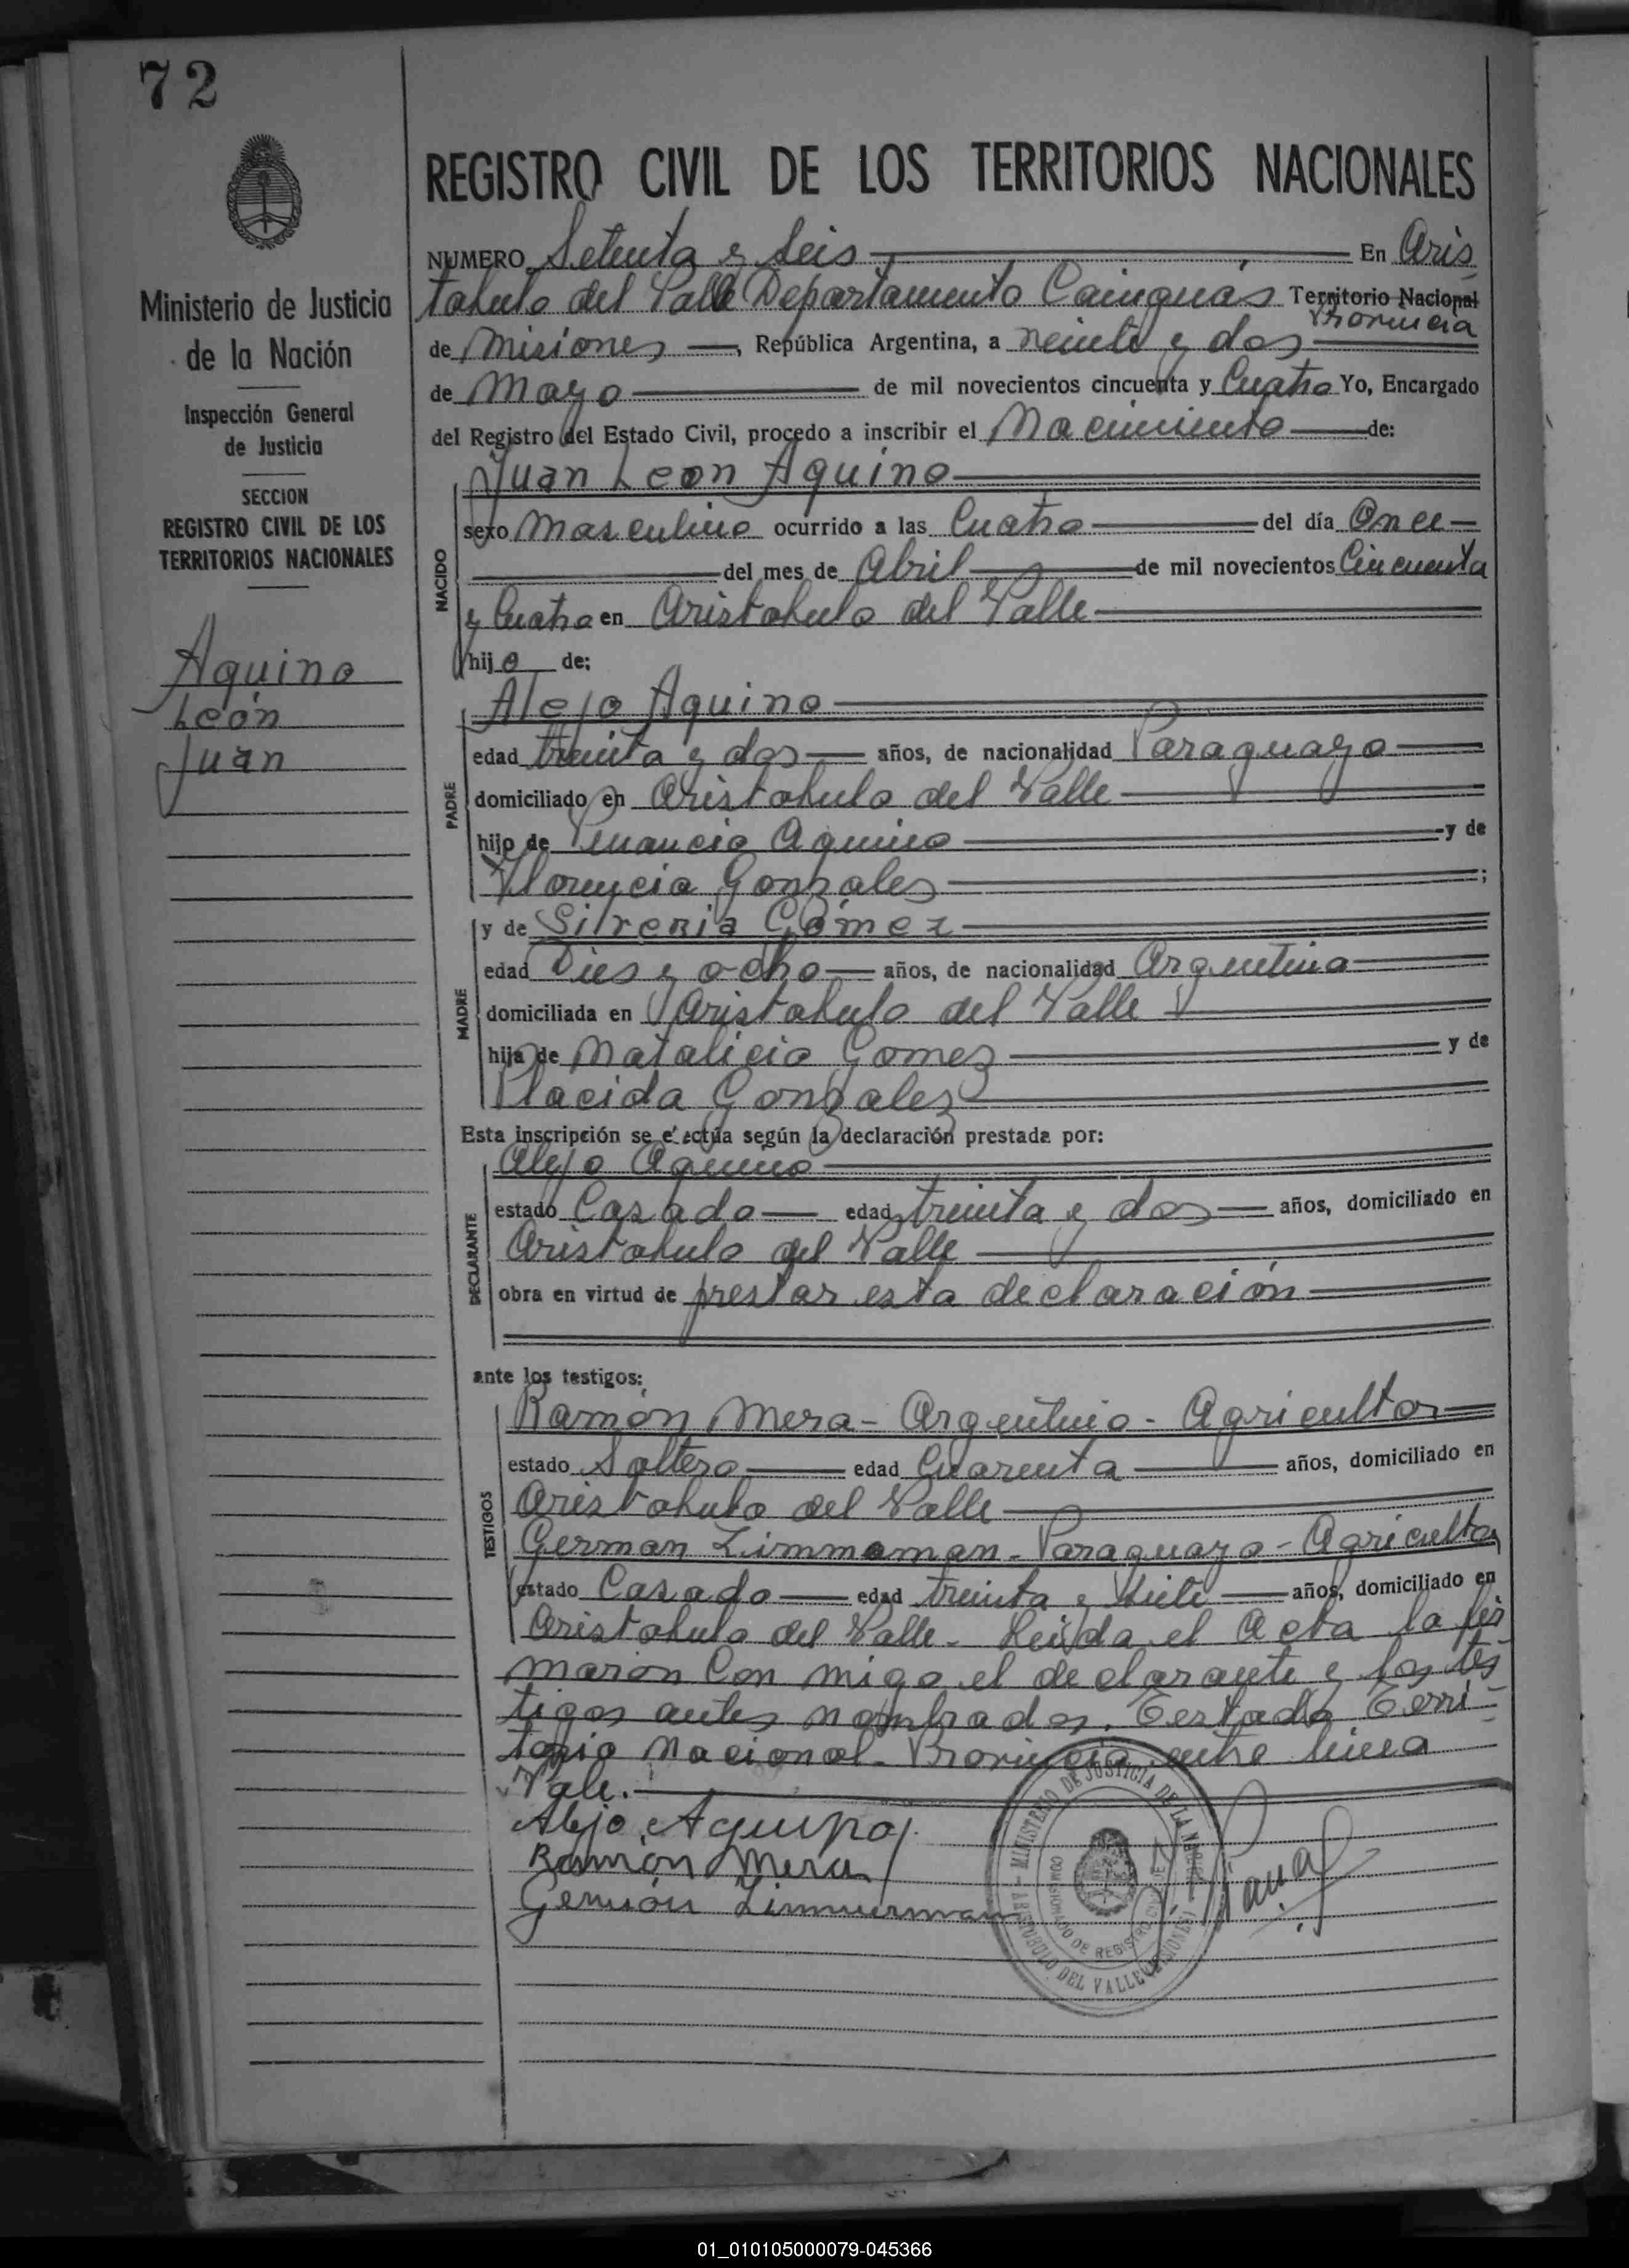 72
REGISTRO CIVIL DE LOS TERRITORIOS NACIONALES
NUMERO Setenta y Seis En Aris
tobulo del Valle Departamento Cainguás Territorio Nacional
Provincia
de Misiones, República Argentina, a veinte y dos
de Mayo de mil novecientos cincuenta y Cuatro Yo, Encargado
del Registro del Estado Civil, procedo a inscribir el Nacimiento de:
Ministerio de Justicia
de la Nación
Inspección General
de Justicia
SECCION
REGISTRO CIVIL DE LOS
TERRITORIOS NACIONALES
Aquino
León
Juan
NACIDO
Juan Leon Aquino
sexo Masculino ocurrido a las Cuatro del día Once
del mes de Abril de mil novecientos Cincuenta
y Cuatro en Aristobulo del Valle
hijo de:
PADRE
Alejo Aquino
edad treinta y dos años, de nacionalidad Paraguayo
domiciliado en Aristobulo del Valle
hijo de Aquino y de
Florencia Gonzales;
MADRE
y de Silveria Gómez
edad Dies y ocho años, de nacionalidad Argentina
domiciliada en Aristobulo del Valle
hija de Natalicio Gomez y de
Placida Gonzalez
Esta inscripción se efectúa según la declaración prestada por:
DECLARANTE
Alejo Aquino
estado Casado edad treinta y dos años, domiciliado en
Aristobulo del Valle
obra en virtud de prestar esta declaración
ante los testigos:
TESTIGOS
Ramón Mera - Argentino - Agricultor
estado Soltero edad Cuarenta años, domiciliado en
Aristobulo del Valle
German Zimmaman - Paraguayo - Agricultor
estado Casado edad treinta y Siete años, domiciliado en
Aristobulo del Valle - Leída el Acta la fir
maron Con migo el declarante y los tes
tigos antes nombrados. Testado Terri-
torio Nacional - Provincia entre linea
Vale.
Alejo Aquino
Ramón Mera
Germán Zimmerman
MINISTERIO DE JUSTICIA DE LA NACION
ARISTOBULO DEL VALLE (MISIONES)
01_010105000079-045366